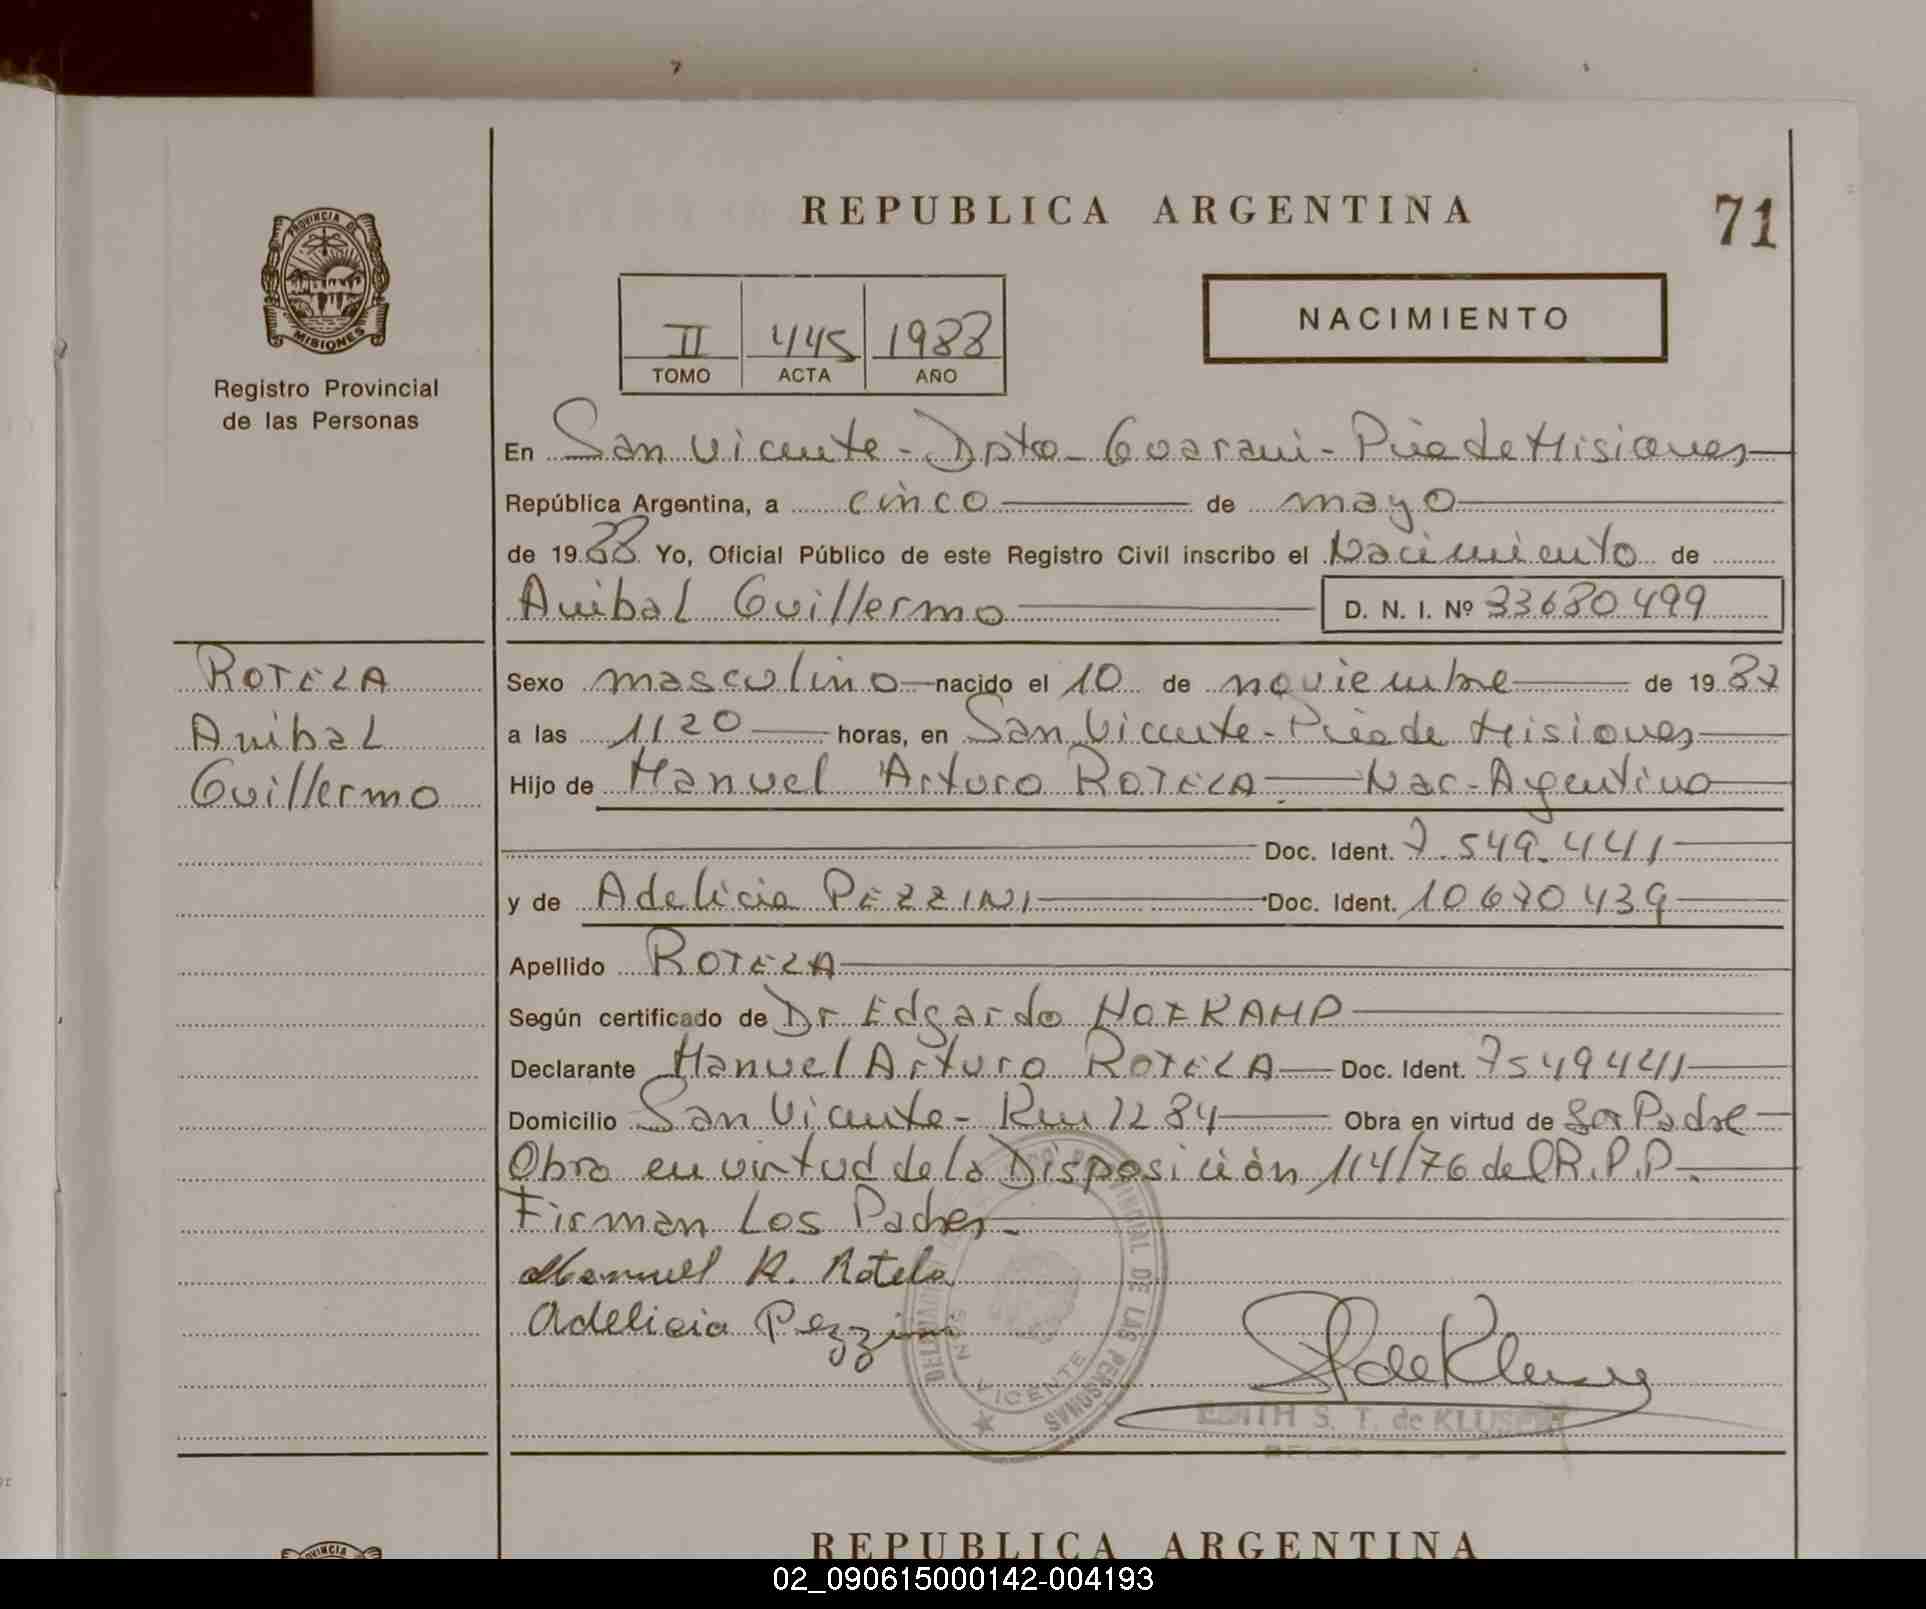 REPUBLICA ARGENTINA
71
PROVINCIA DE
MISIONES
Registro Provincial
de las Personas
II 445 1988
TOMO ACTA AÑO
NACIMIENTO
En San Vicente - Dpto - Guarani - Pcia de Misiones
República Argentina, a cinco de mayo
de 1988 Yo, Oficial Público de este Registro Civil inscribo el Nacimiento de
Anibal Guillermo D. N. I. Nº 33680499
ROTELA
Anibal
Guillermo
Sexo masculino nacido el 10 de noviembre de 1987
a las 1120 horas, en San Vicente - Pcia de Misiones
Hijo de Manuel Arturo ROTELA - Nac - Argentino
Doc. Ident. 7.549.441
y de Adelicia PEZZINI Doc. Ident. 10670439
Apellido ROTELA
Según certificado de Dr Edgardo HOFKAMP
Declarante Manuel Arturo ROTELA Doc. Ident. 7549441
Domicilio San Vicente - Km 1284 Obra en virtud de Ser Padre
Obra en virtud de la Disposición 114/76 del R.P.P.
Firman Los Padres -
Manuel A. Rotela
Adelicia Pezzini
PROVINCIAL DE LAS PERSONAS
SAN VICENTE
EDITH S. T. de KLUSENER
REPUBLICA ARGENTINA
PROVINCIA
02_090615000142-004193